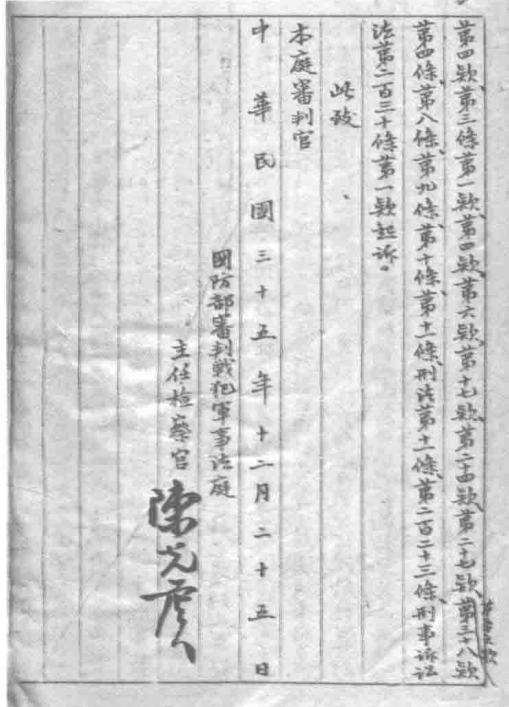 第四款、第三條第一款、第四款、第六款、第十七款、第二十四款、第二十七款、第三十八款
第四條、第八條、第九條、第十條、第十一條、刑法第十一條、第二百二十三條、刑事訴訟
法第二百三十條第一款起訴。
此致
本庭審判官
中華民國三十五年十二月二十五日
國防部審判戰犯軍事法庭
主任檢察官
陳光虞